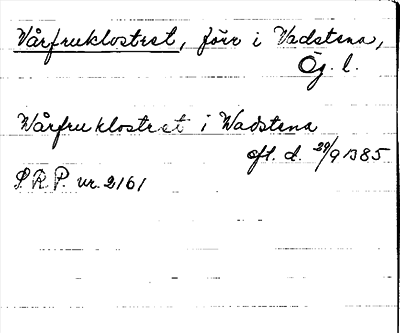 Vårfruklostret, förr i Vadstena,
Ög. l.
Wårfru klostret i Wadstena
afl. d. 29/9 1385
S.R.P. nr. 2161